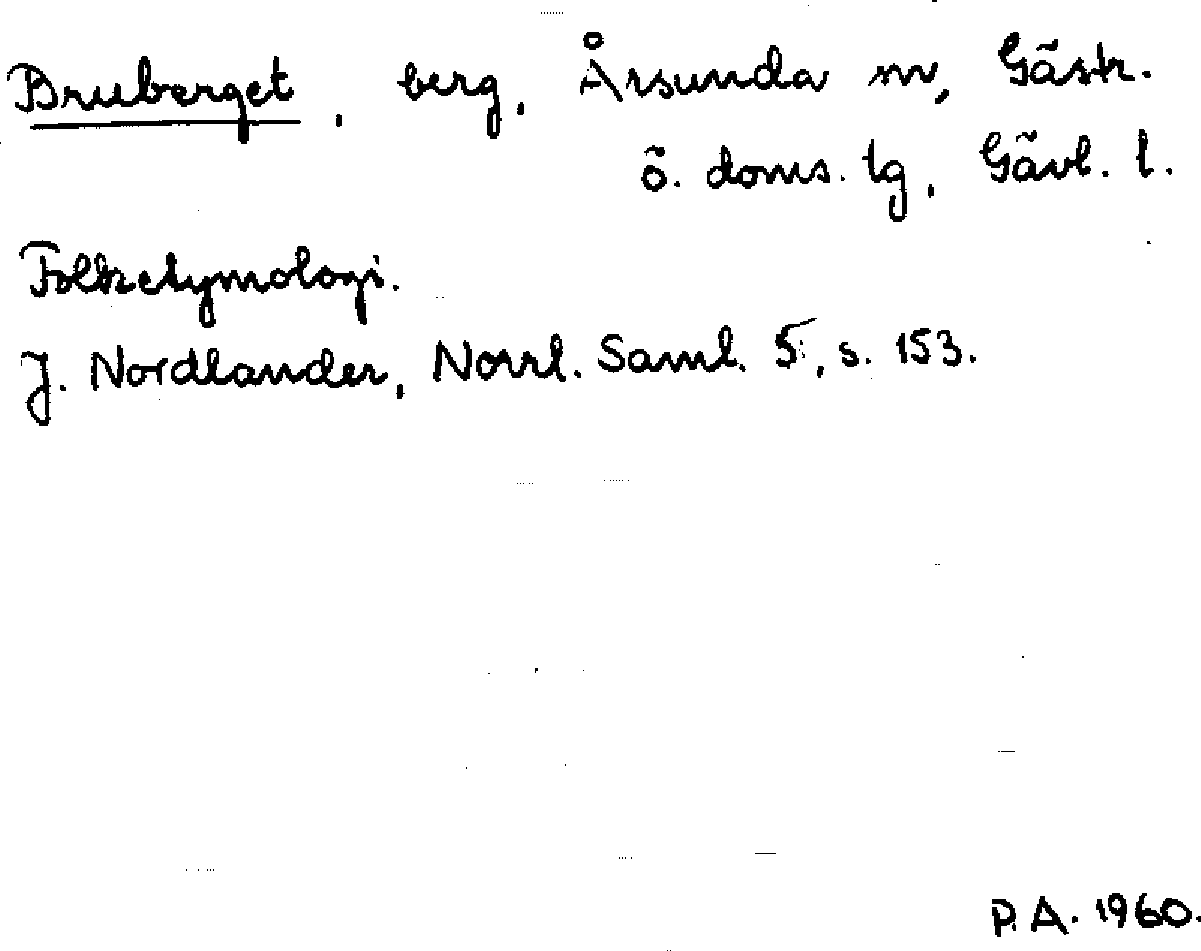 Bruberget, berg, Årsunda sn, Gästr.
ö. doms. lg, Gävl. l.
Folketymologi.
J. Nordlander, Norrl. Saml. 5, s. 153.
P.A. 1960.